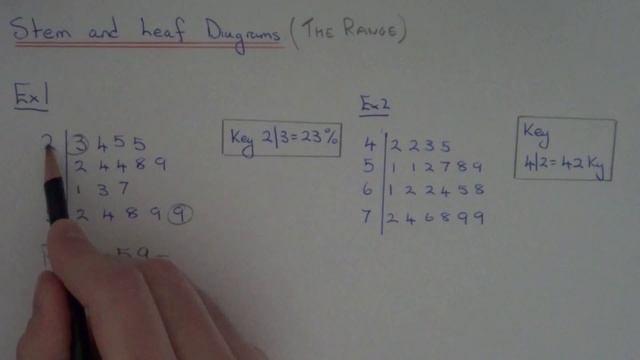 Stem and Leaf Diagrams (THE RANGE)
Ex1
2 | 3 4 5 5
2 4 4 8 9
1 3 7
2 4 8 9 9
5 9 -
Key 2|3 = 23%
Ex2
4 | 2 2 3 5
5 | 1 1 2 7 8 9
6 | 1 2 2 4 5 8
7 | 2 4 6 8 9 9
Key
4|2 = 42 Kg